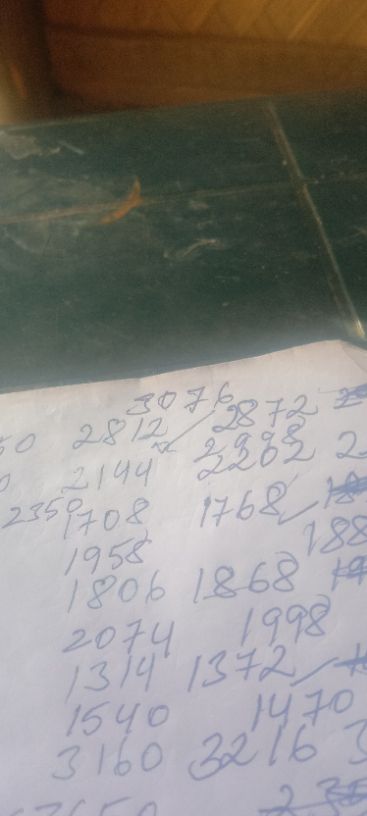 3076
50 2812 2872
0 2144 2202 2
2350 1708 1768
1958 188
1806 1868
2074 1998
1314 1372
1540 1470
3160 3216 3